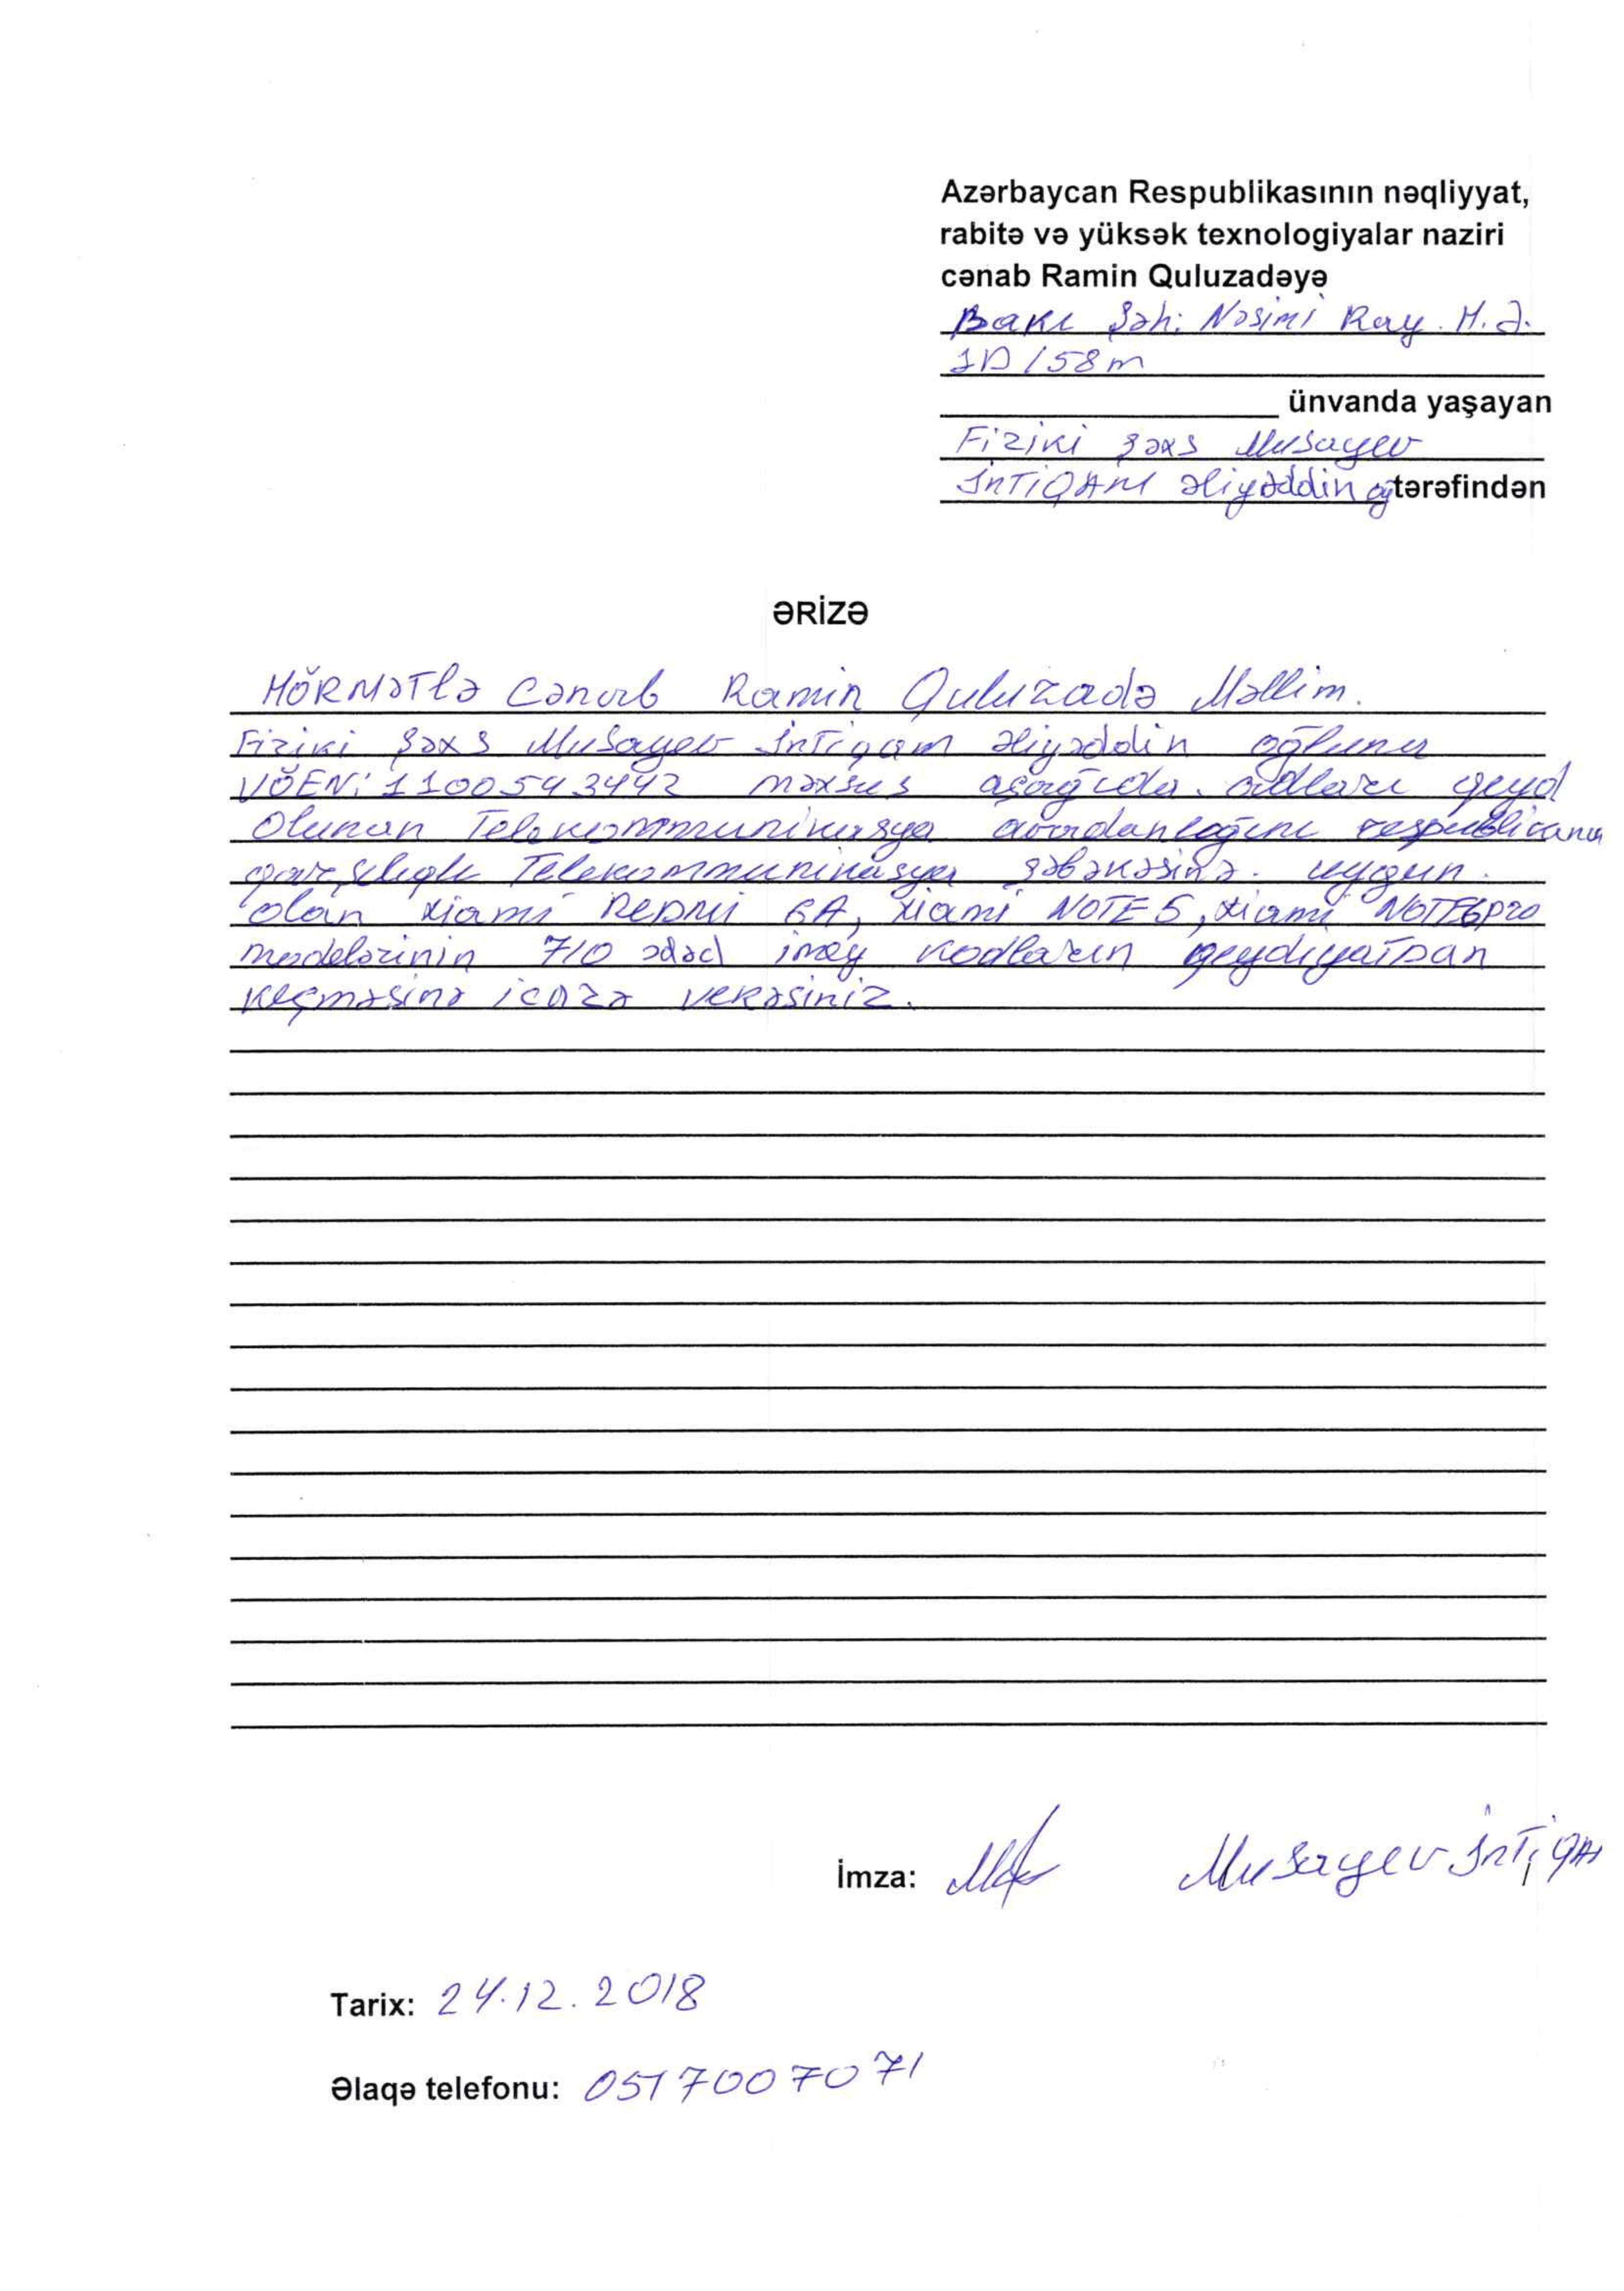 Azərbaycan Respublikasının nəqliyyat,
rabitə və yüksək texnologiyalar naziri
cənab Ramin Quluzadəyə
Bakı Şəh. Nəsimi Ray. H.Ə.
1D/58m
ünvanda yaşayan
Fiziki şəxs Musayev
İNTİQAM Əliyəddin oğ tərəfindən
ƏRİZƏ
HÖRMƏTlə Cənab Ramin Quluzadə Məllim.
Fiziki Şəxs Musayev İntiqam Əliyəddin oğluna
VÖEN: 1100543442 məxsus aşağıda adları qeyd
Olunan Telekommunikasya avadanlığını respublikana
qarşılıqlı Telekommunikasya şəbəkəsinə uyğun
olan xiami REDMI 6A, xiami NOTE 5, xiami NOTE6PRO
modelərinin 710 ədəd imey kodların qeydiyatDan
keçməsinə icazə verəsiniz.
İmza: Musayev İNTiQA
Tarix: 24.12.2018
Əlaqə telefonu: 0517007071